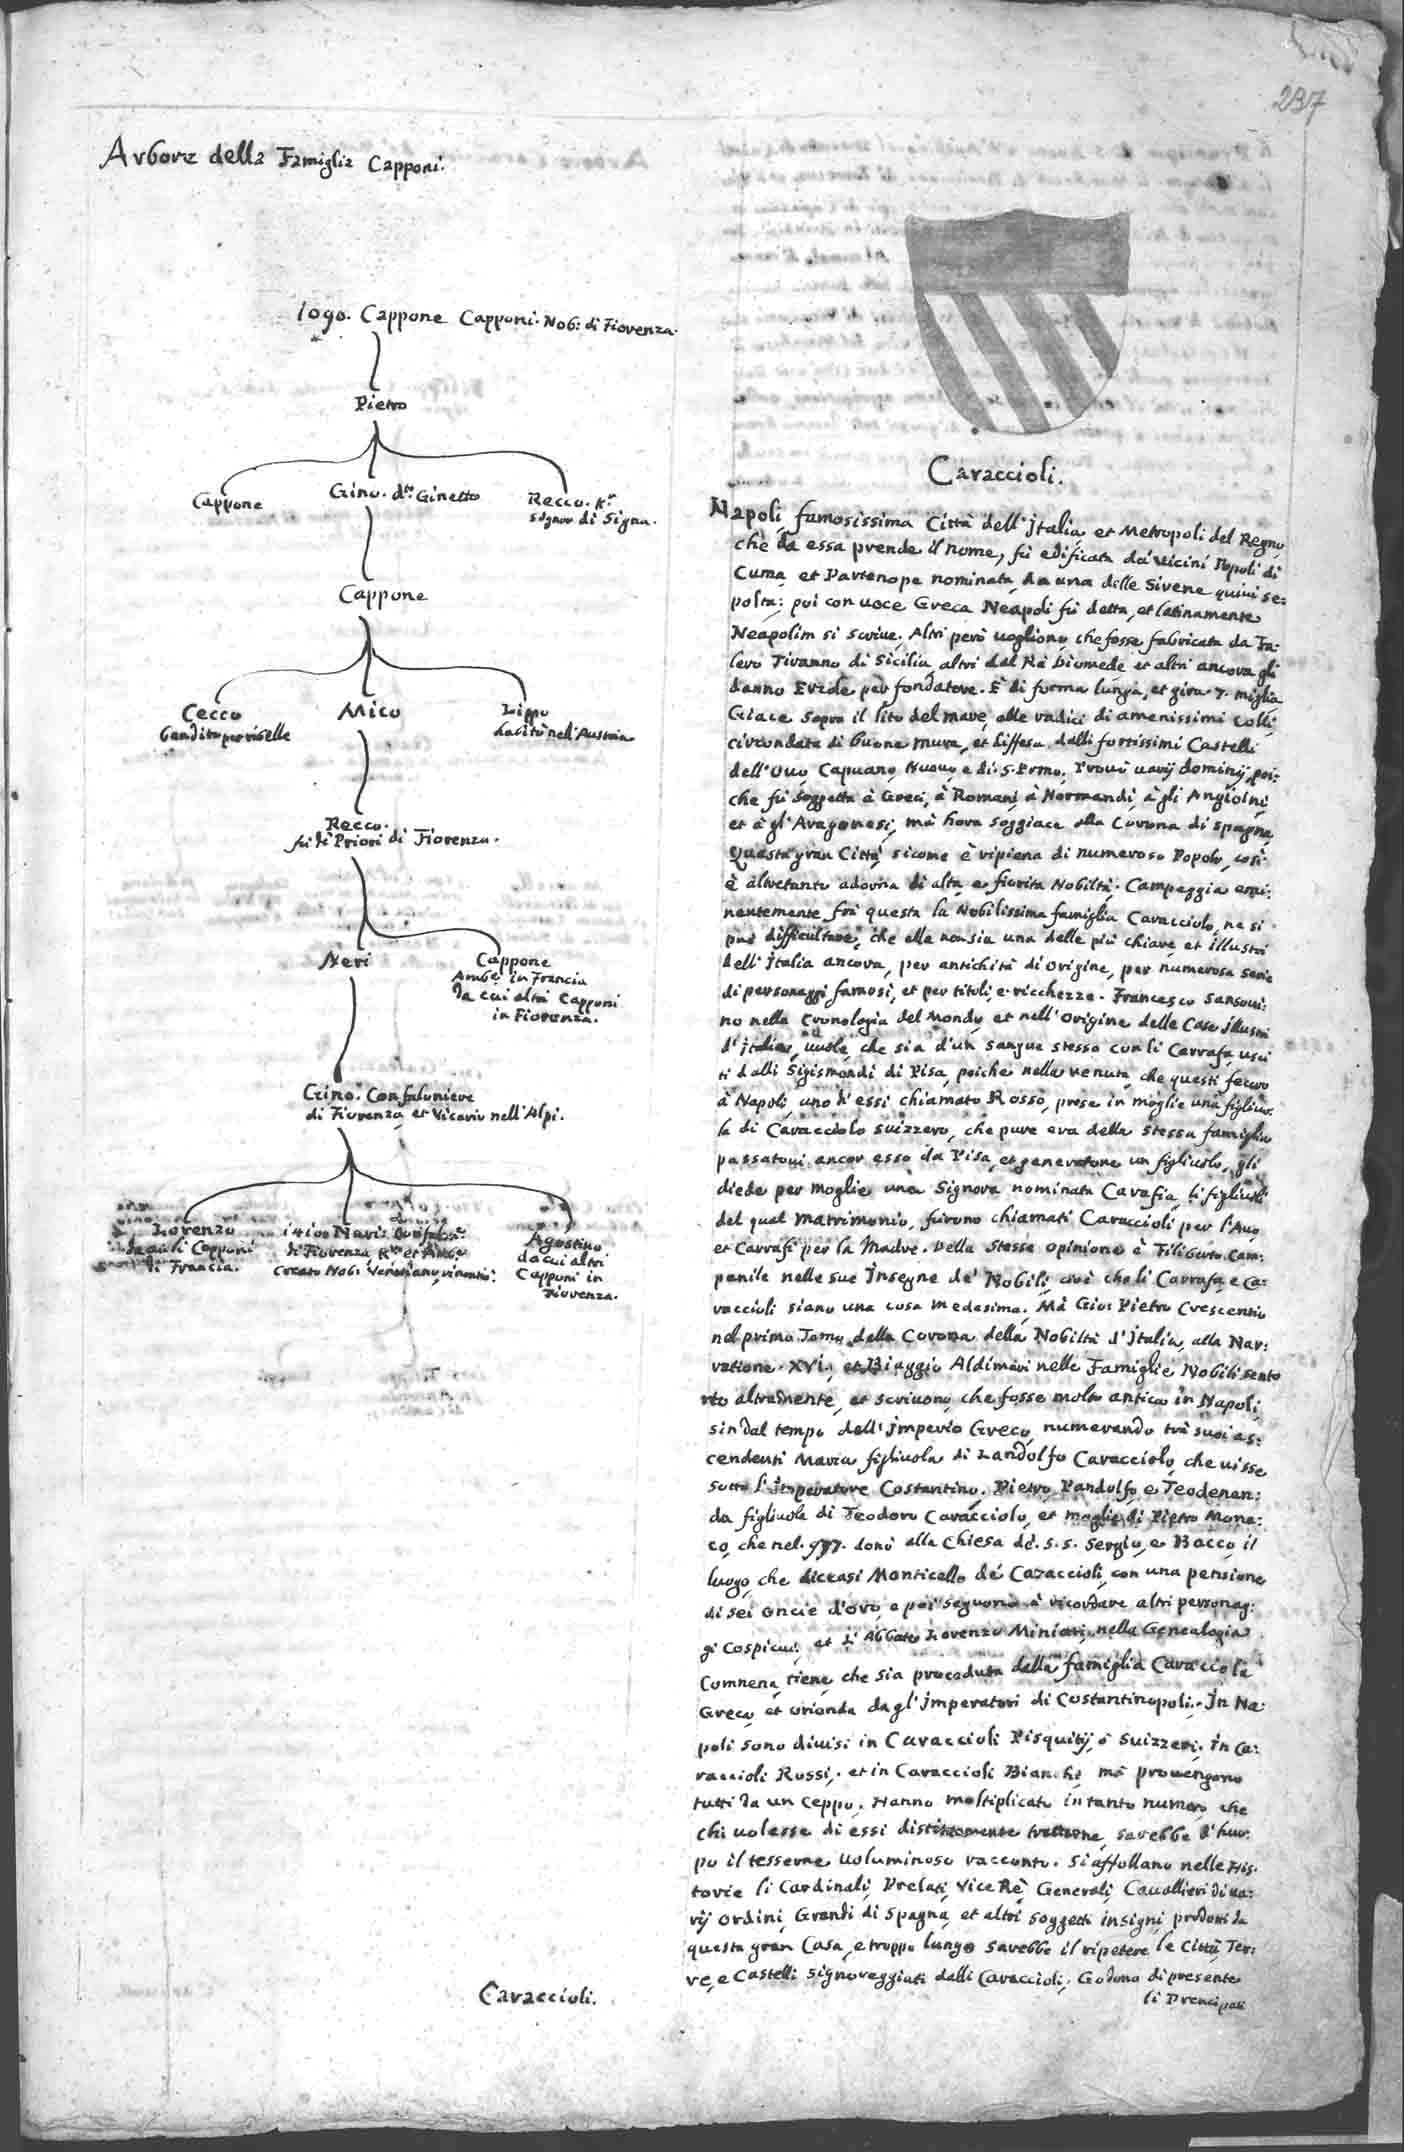 237
Arbore della Famiglia Capponi.
1090. Cappone Capponi. Nob: di Fiorenza.
Pietro
Cappone
Gino. dto. Ginetto
Recco. Kr.
Signor di Signa.
Cappone
Cecco
bandito per ribelle
Mico
Lippo
habitò nell'Austria
Recco.
fù de Priori di Fiorenza.
Neri
Cappone
Ambr in Francia
da cui altri Capponi
in Fiorenza.
Gino. Confaloniere
di Fiorenza, et Vicario nell'Alpi.
Lorenzo
da cui li Capponi
di Francia.
1400 Neri
di Fiorenza Kr. et Ambr.
Creato Nob: Venetiano
Agostino
da cui altri
Capponi in
Fiorenza.
Caraccioli.
Caraccioli.
Napoli famosissima Città dell'Italia, et Metropoli del Regno
che da essa prende il nome, fù edificata da vicini Popoli di
Cuma, et Partenope nominata, da una delle Sirene quivi se:
polta; poi con uoce Greca Neapoli fù detta, et latinamente
Neapolim si scriue. Altri però uogliono, che fosse fabricata da Fa:
lero Tiranno di Sicilia altri dal Rè Diomede et altri ancora gli
danno Ercole per fondatore. È di forma lunga, et gira 7. miglia
Giace sopra il lito del mare, alle radici di amenissimi colli,
circondata di buone mura, et diffesa dalli fortissimi Castelli
dell'Ouo, Capuano, Nuouo, e di S. Ermo. Prouò uarij dominij, poi:
che fù soggetta à Greci, à Romani, à Normandi, à gli Angioini,
et à gl'Aragonesi, mà hora soggiace alla Corona di Spagna.
Questa gran Città, sicome è ripiena di numeroso Popolo, così
è altretanto adorna di alta, e fiorita Nobiltà. Campeggia emi:
nentemente frà questa la Nobilissima famiglia Caracciolo, ne si
può difficultare, che ella non sia una delle più chiare, et illustri
dell'Italia ancora, per antichità di origine, per numerosa serie
di personaggi famosi, et per tituli, e ricchezze. Francesco Sansoui:
no nella Cronologia del Mondo, et nell'Origine delle Case illustri
d'Italia, uuole, che sia d'un sangue stesso con li Carrafa, usci
ti dalli Sigismondi di Pisa, poiche nella venuta, che questi fecero
à Napoli, uno d'essi chiamato Rosso, prese in moglie una figliuo:
la di Caracciolo Suizzero, che pure era della stessa famiglia
passatoui ancor esso da Pisa, et generatone un figliuolo, gli
diede per moglie una Signora nominata Carafia, li figliuoli
del qual matrimonio, furono chiamati Caraccioli per l'Auo
et Carrafi per la Madre. Della stessa opinione è Filiberto Cam:
panile nelle sue Insegne de' Nobili, cioè che li Carrafa, e Ca:
raccioli siano una cosa medesima. Mà Gio: Pietro Crescentio
nel primo Tomo della Corona della Nobiltà d'Italia, alla Nar:
ratione XVI., et Biaggio Aldimari nelle Famiglie Nobili sento
no altramente, et scriuono, che fosse molto antica in Napoli
sin dal tempo dell'Imperio Greco, numerando trà suoi as:
cendenti Maria figliuola di Landolfo Caracciolo, che uisse
sotto l'Imperatore Costantino. Pietro, Pandolfo, e Teodenan:
da figliuola di Teodoro Caracciolo, et moglie di Pietro Mona:
co, che nel. 977. donò alla Chiesa de'. S. S. Sergio, e Bacco il
luogo, che diceasi Monticello de' Caraccioli, con una pensione
di sei oncie d'oro, e poi seguono à ricordare altri personag:
gi Cospicui; et L'Abbate Lorenzo Miniati, nella Genealogia
Comnena, tiene, che sia proceduta dalla famiglia Caracciola
Greca, et orionda dagl'Imperatori di Costantinopoli. In Na:
poli sono diuisi in Caraccioli Pisquitij, ò Suizzeri. in Ca:
raccioli Rossi, et in Caraccioli Bianchi, mà prouengono
tutti da un Ceppo. Hanno moltiplicato in tanto numero, che
chi uolesse di essi distintamente trattarne, sarebbe d'huo:
po il tesserne uoluminoso racconto. Si affollano nelle His:
torie li Cardinali, Prelati, Vice Rè, Generali, Cauallieri di ua:
rij ordini, Grandi di Spagna, et altri soggetti insigni, prodotti da
questa gran Casa, e troppo lungo sarebbe il ripetere le Città, Ter:
re, e Castelli signoreggiati dalli Caraccioli; Godono di presente
li Prencipati